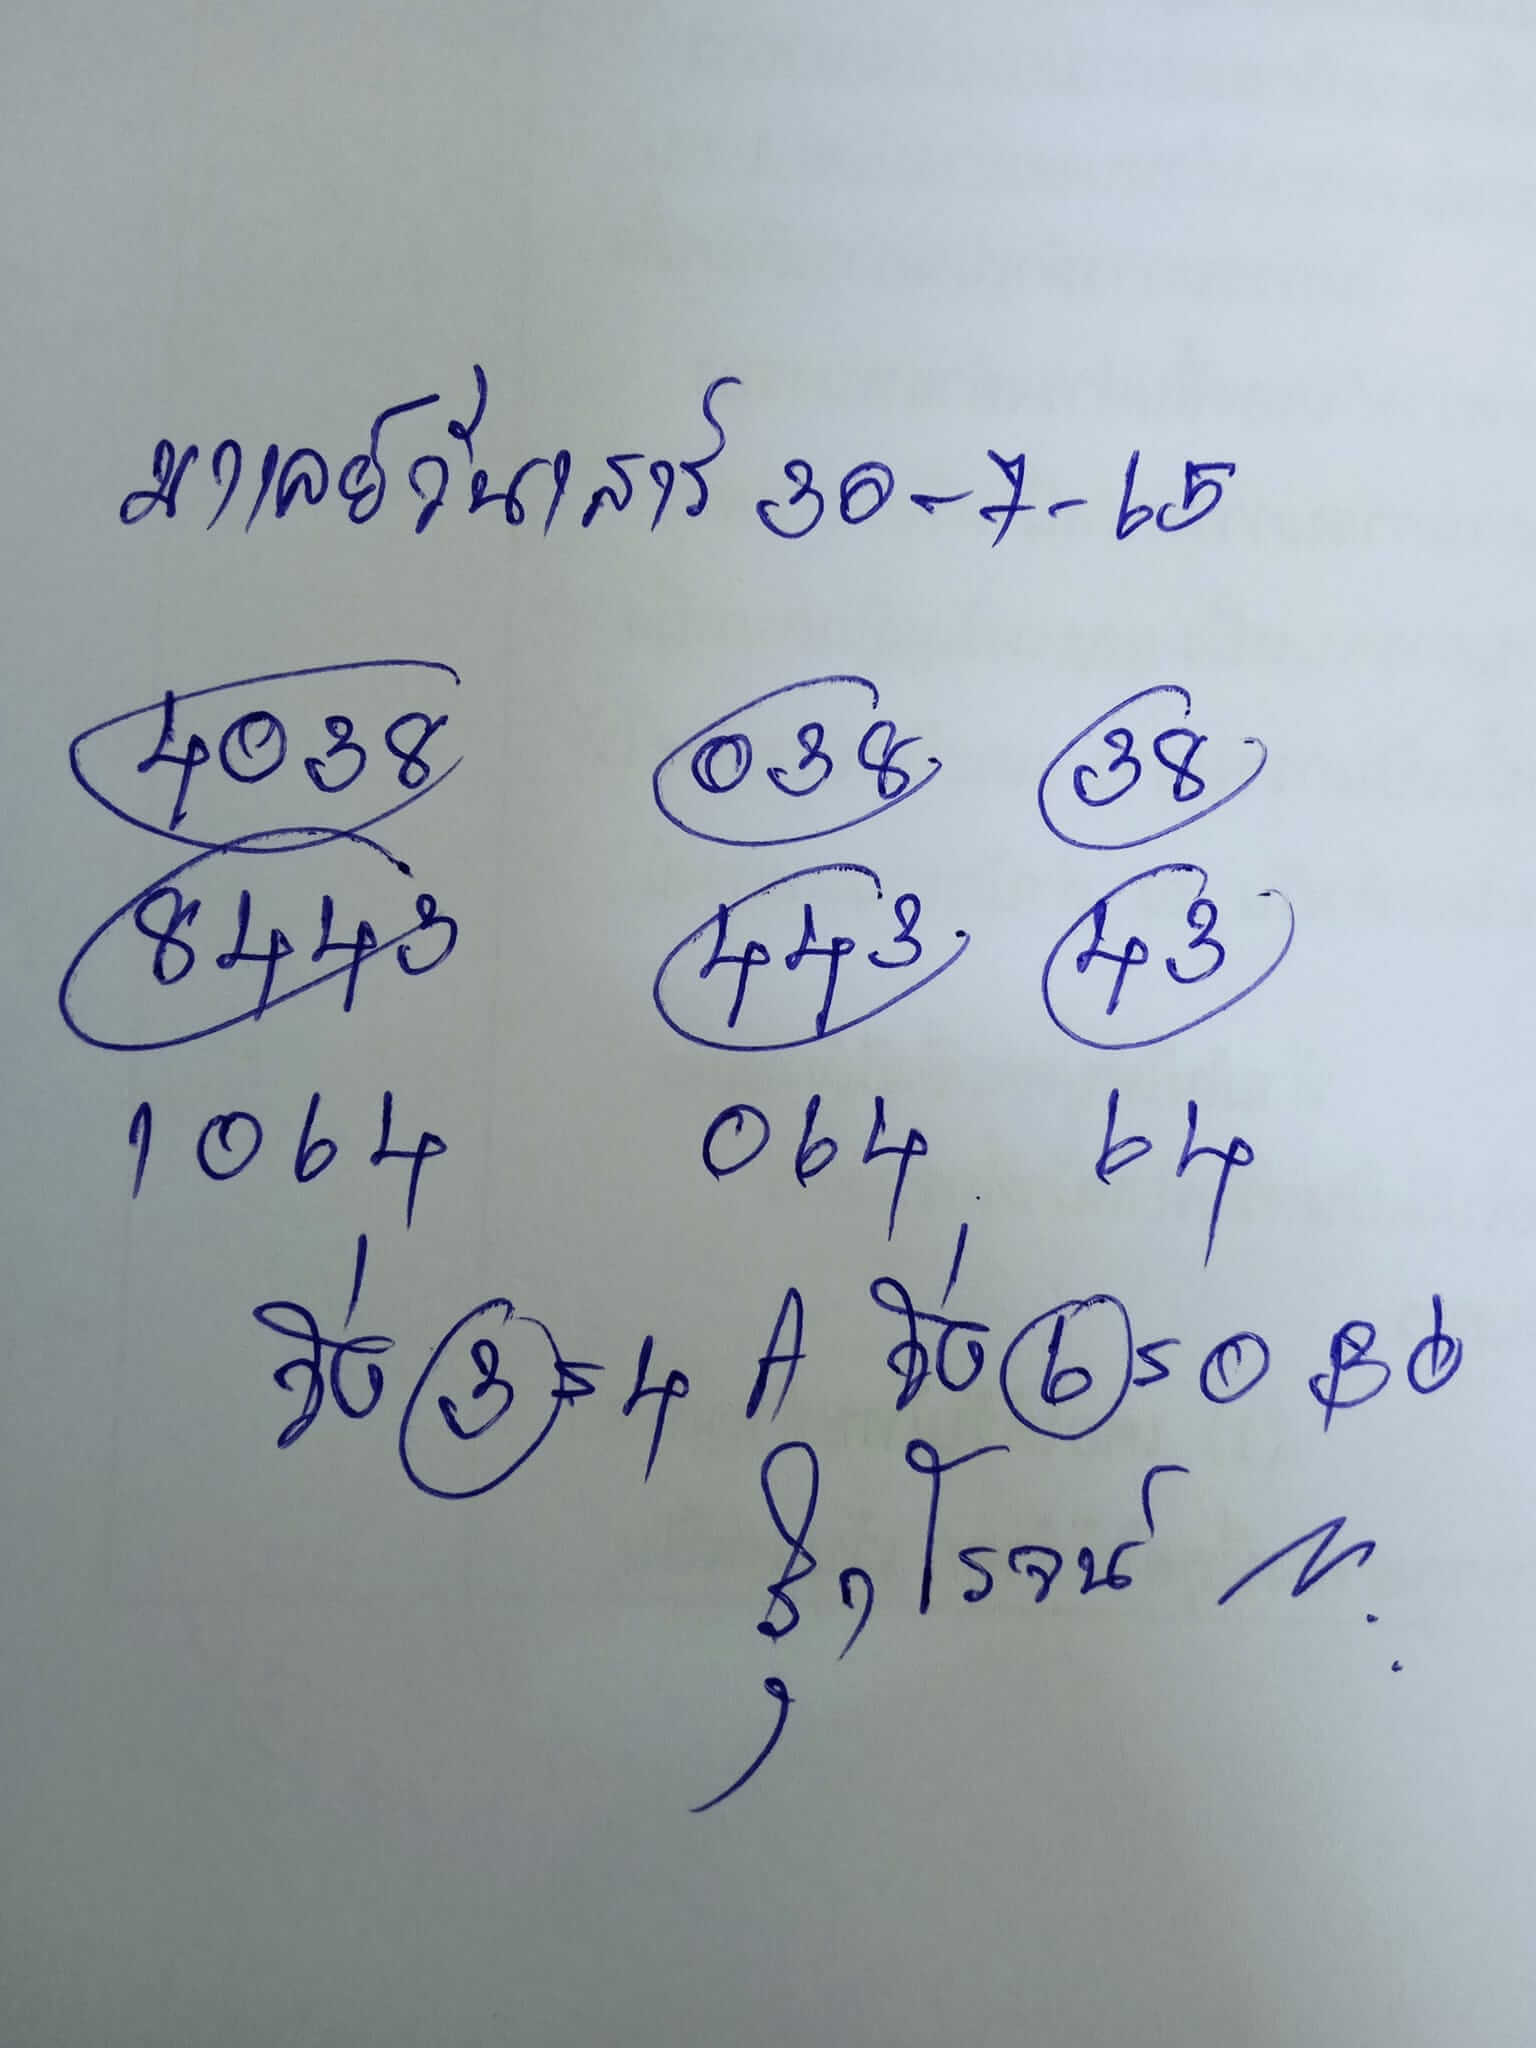 มาเลย์วันเสาร์ 30-7-65
4038 038 38
8443 443 43
1064 064 64
วิ่ง 3 = 4 A วิ่ง 6 = 0
โรจน์